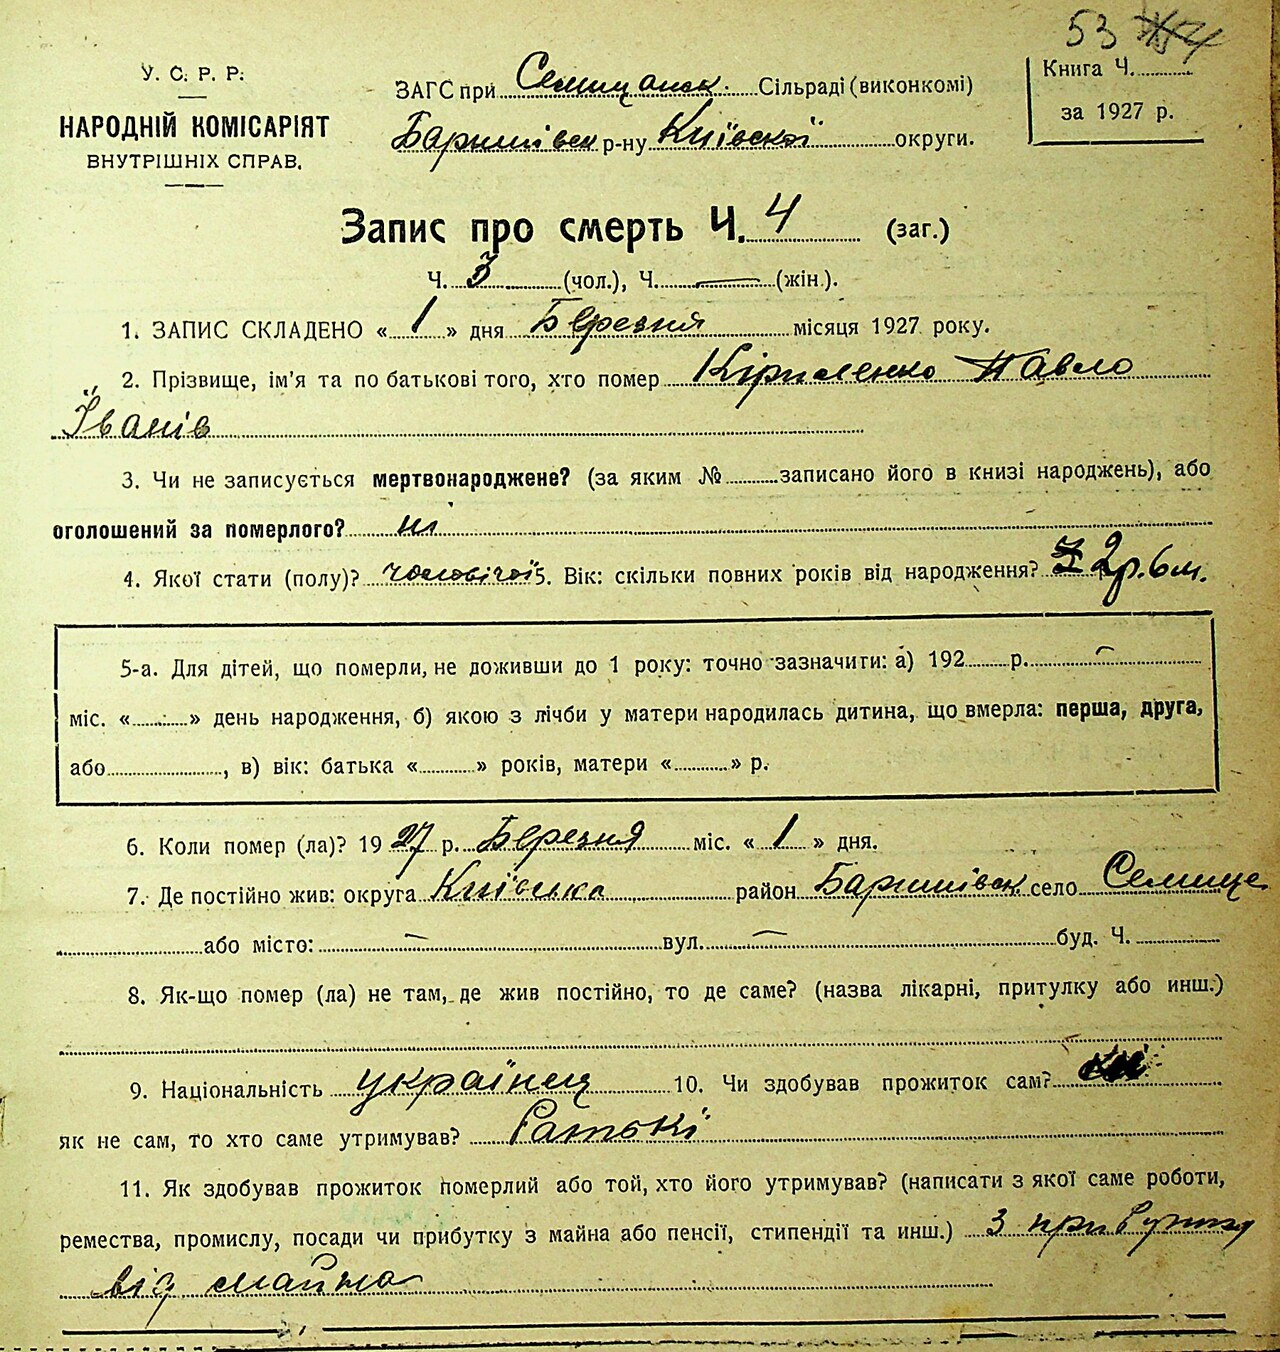 53
У. С. Р. Р.
НАРОДНІЙ КОМІСАРІЯТ
ВНУТРІШНІХ СПРАВ.
ЗАГС при Семищанск. Сільраді (виконкомі)
Баришівск р-ну Київської округи.
Книга Ч.
за 1927 р.
Запис про смерть Ч. 4 (заг.)
Ч. 3 (чол.), Ч. — (жін.).
1. ЗАПИС СКЛАДЕНО « 1 » дня Березня місяця 1927 року.
2. Прізвище, ім'я та по батькові того, хто помер Кириленко Павло
Іванів
3. Чи не записується мертвонароджене? (за яким № записано його в книзі народжень), або
оголошений за померлого? ні
4. Якої стати (полу)? чоловічої 5. Вік: скільки повних років від народження? 2 р. 6 м.
5-а. Для дітей, що померли, не доживши до 1 року: точно зазначити: а) 192 р. —
міс. « » день народження, б) якою з лічби у матери народилась дитина, що вмерла: перша, друга,
або , в) вік: батька « » років, матери « » р.
6. Коли помер (ла)? 1927 р. Березня міс. « 1 » дня.
7. Де постійно жив: округа Київська район Баришівск. село Семище
або місто: — вул. — буд. Ч.
8. Як-що помер (ла) не там, де жив постійно, то де саме? (назва лікарні, притулку або инш.)
9. Національність українец 10. Чи здобував прожиток сам?
як не сам, то хто саме утримував? Батькі
11. Як здобував прожиток померлий або той, хто його утримував? (написати з якої саме роботи,
ремества, промислу, посади чи прибутку з майна або пенсії, стипендії та инш.) З прибутку
від майна